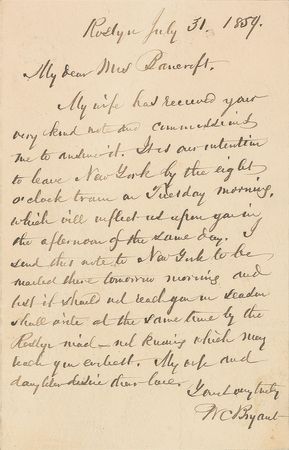 Roslyn July 31. 1859.
My dear Mrs Bancroft.
My wife has received your
very kind note and commissions
me to answer it. It is our intention
to leave New York by the eight
o'clock train on Tuesday morning,
which will inflict us upon you in
the afternoon of the same day. I
send this note to New York to be
mailed there tomorrow morning and
lest it should not reach you in season
shall write at the same time by the
Roslyn mail - not knowing which may
reach you earliest. My wife and
daughter desire their love.
Yours very truly
W C Bryant